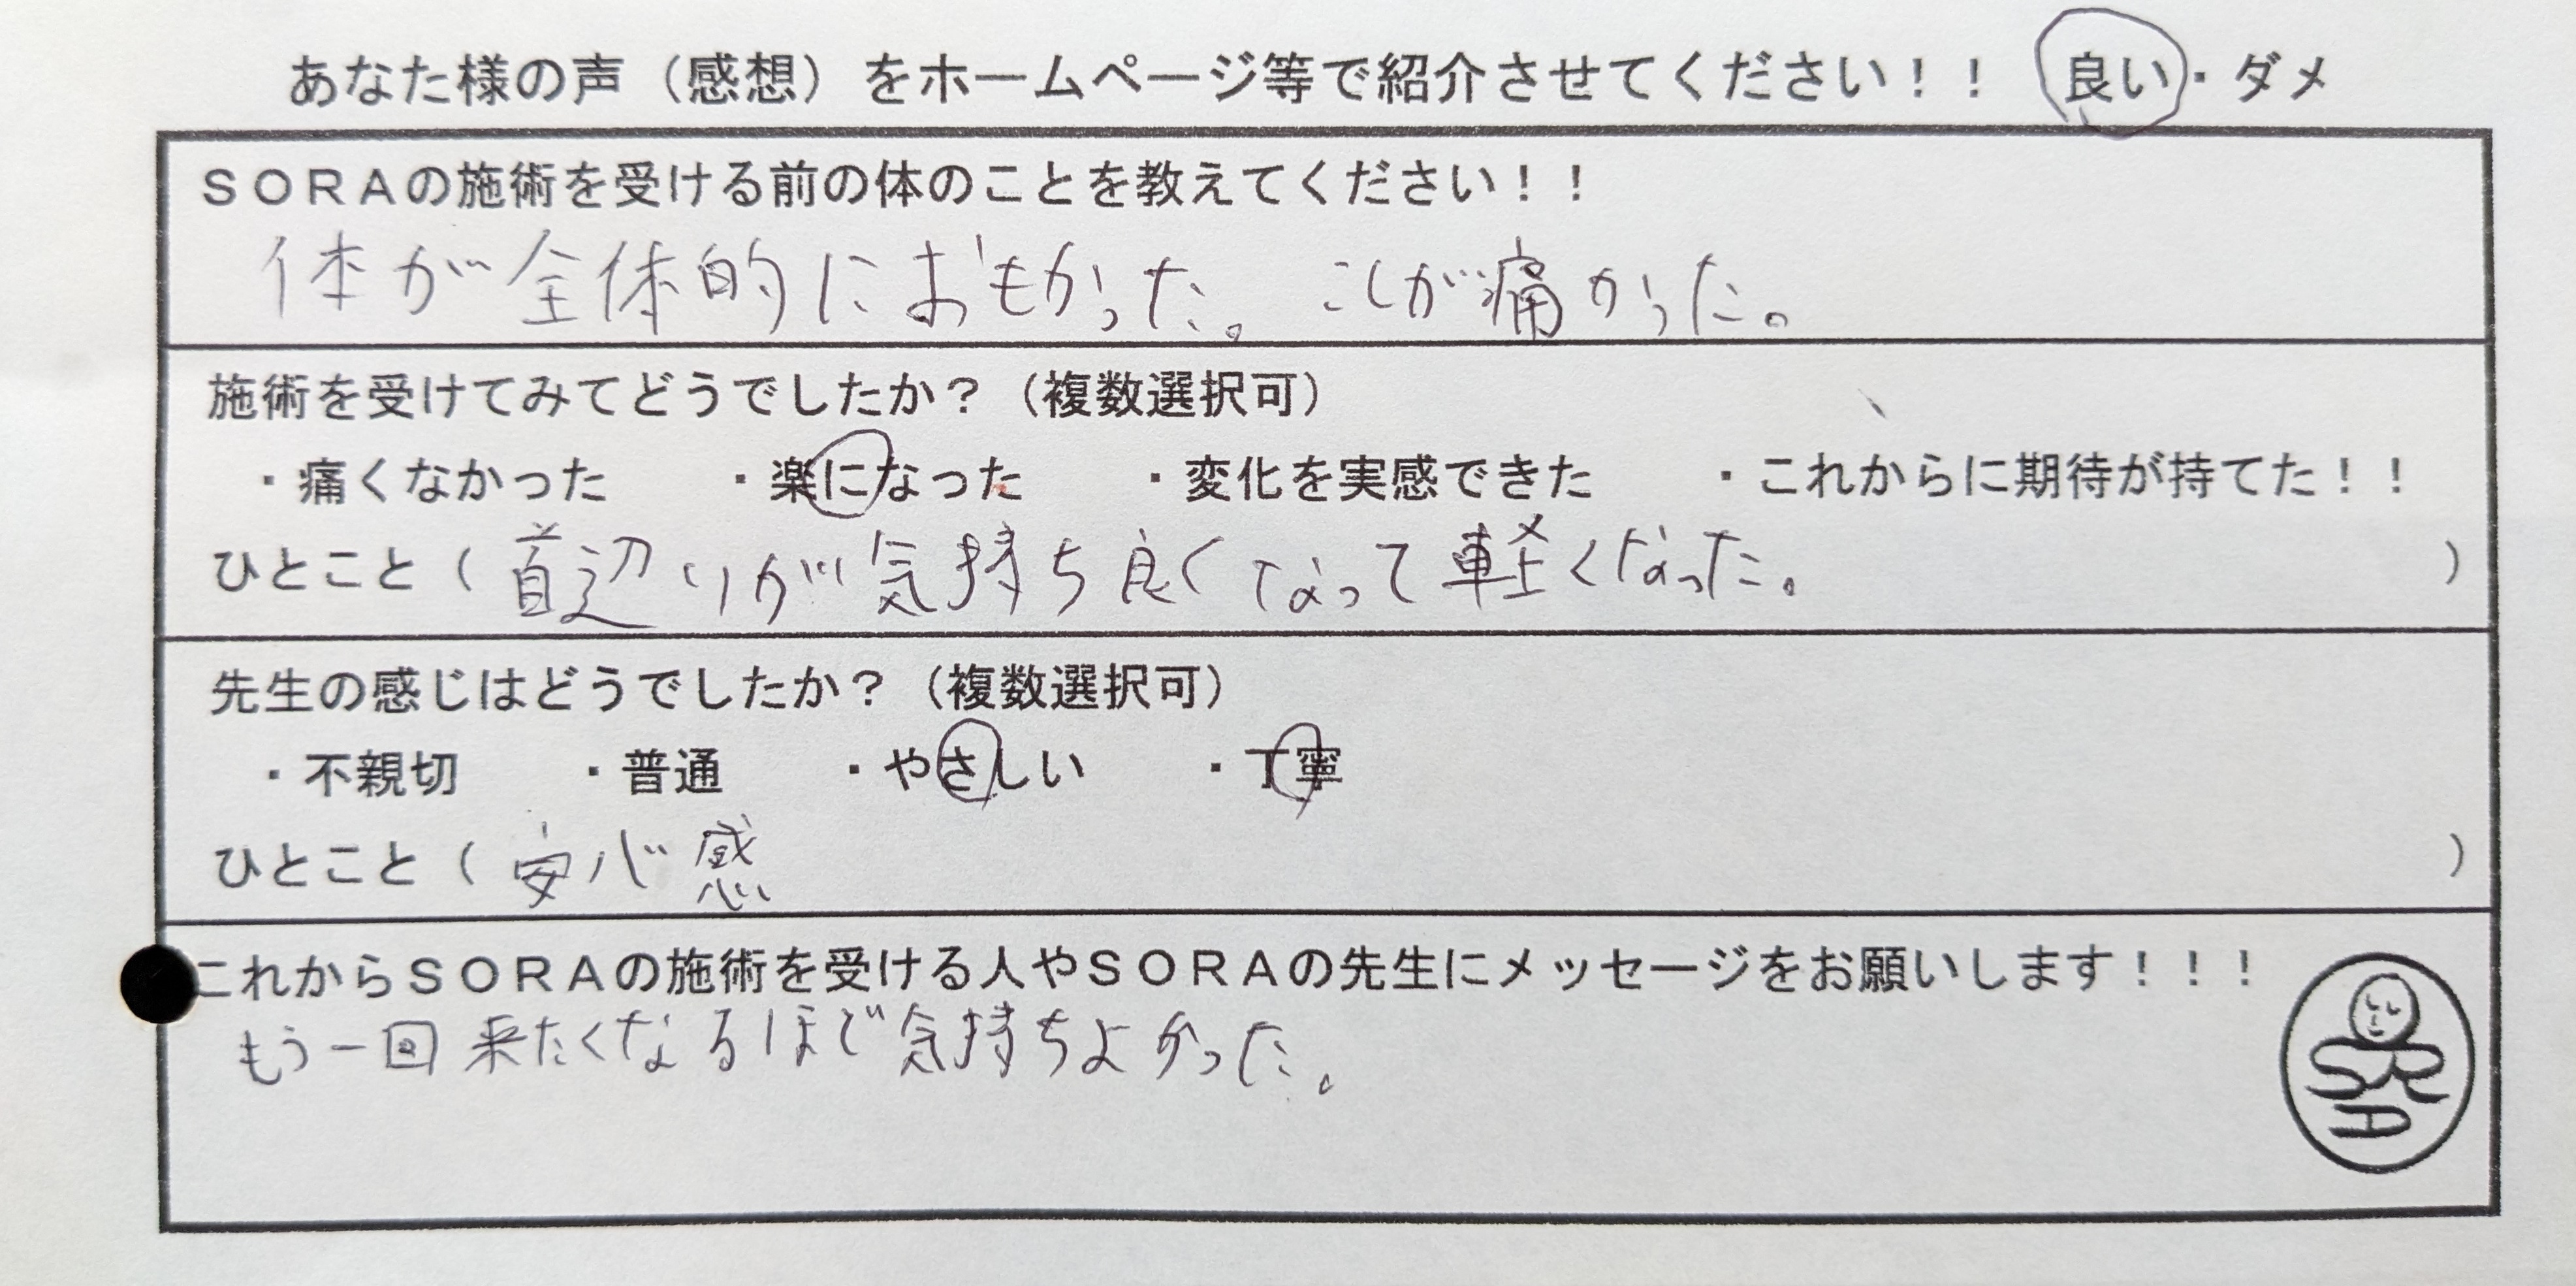 あなた様の声（感想）をホームページ等で紹介させてください！！ 良い・ダメ
ＳＯＲＡの施術を受ける前の体のことを教えてください！！
体が全体的におもかった。こしが痛かった。
施術を受けてみてどうでしたか？（複数選択可）
・痛くなかった ・楽になった ・変化を実感できた ・これからに期待が持てた！！
ひとこと（首辺りが気持ち良くなって軽くなった。）
先生の感じはどうでしたか？（複数選択可）
・不親切 ・普通 ・やさしい ・丁寧
ひとこと（安心感）
これからＳＯＲＡの施術を受ける人やＳＯＲＡの先生にメッセージをお願いします！！！
もう一回来たくなるほど気持ちよかった。
SORA